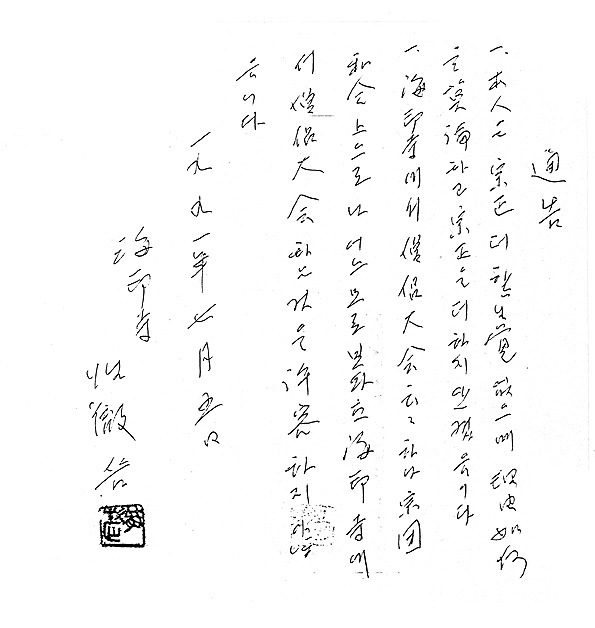 通告
一. 本人은 宗正 더 할 生覺 없으며 理由如何
를 莫論하고 宗正을 더 하지 안켔음니다
一. 海印寺에서 僧侶大会云云하나 宗団
和合上으로나 어느모로보와도 海印寺에
서 僧侶大会하는것은 許容하지 않
음니다
一九九一年 七月 五日
海印寺
性徹 告